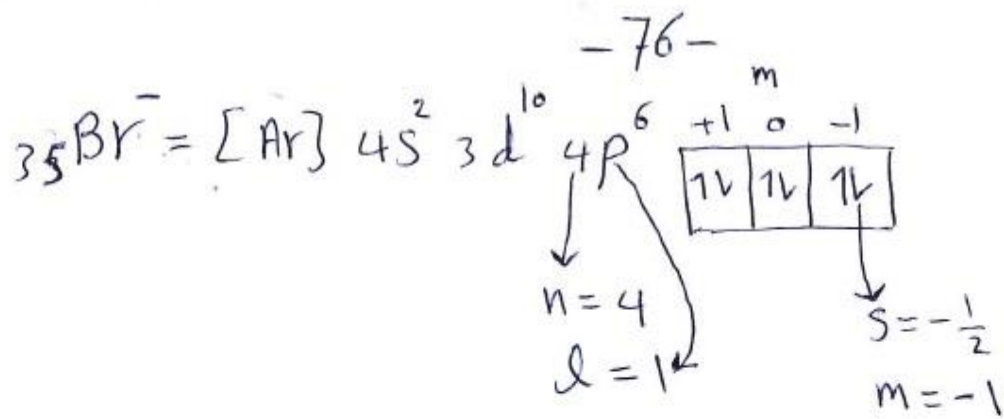 -76-
m
₃₅Br⁻ = [Ar] 4S² 3d¹⁰ 4P⁶ +1 0 -1
1L 1L 1L
n = 4
l = 1
S = -1/2
m = -1